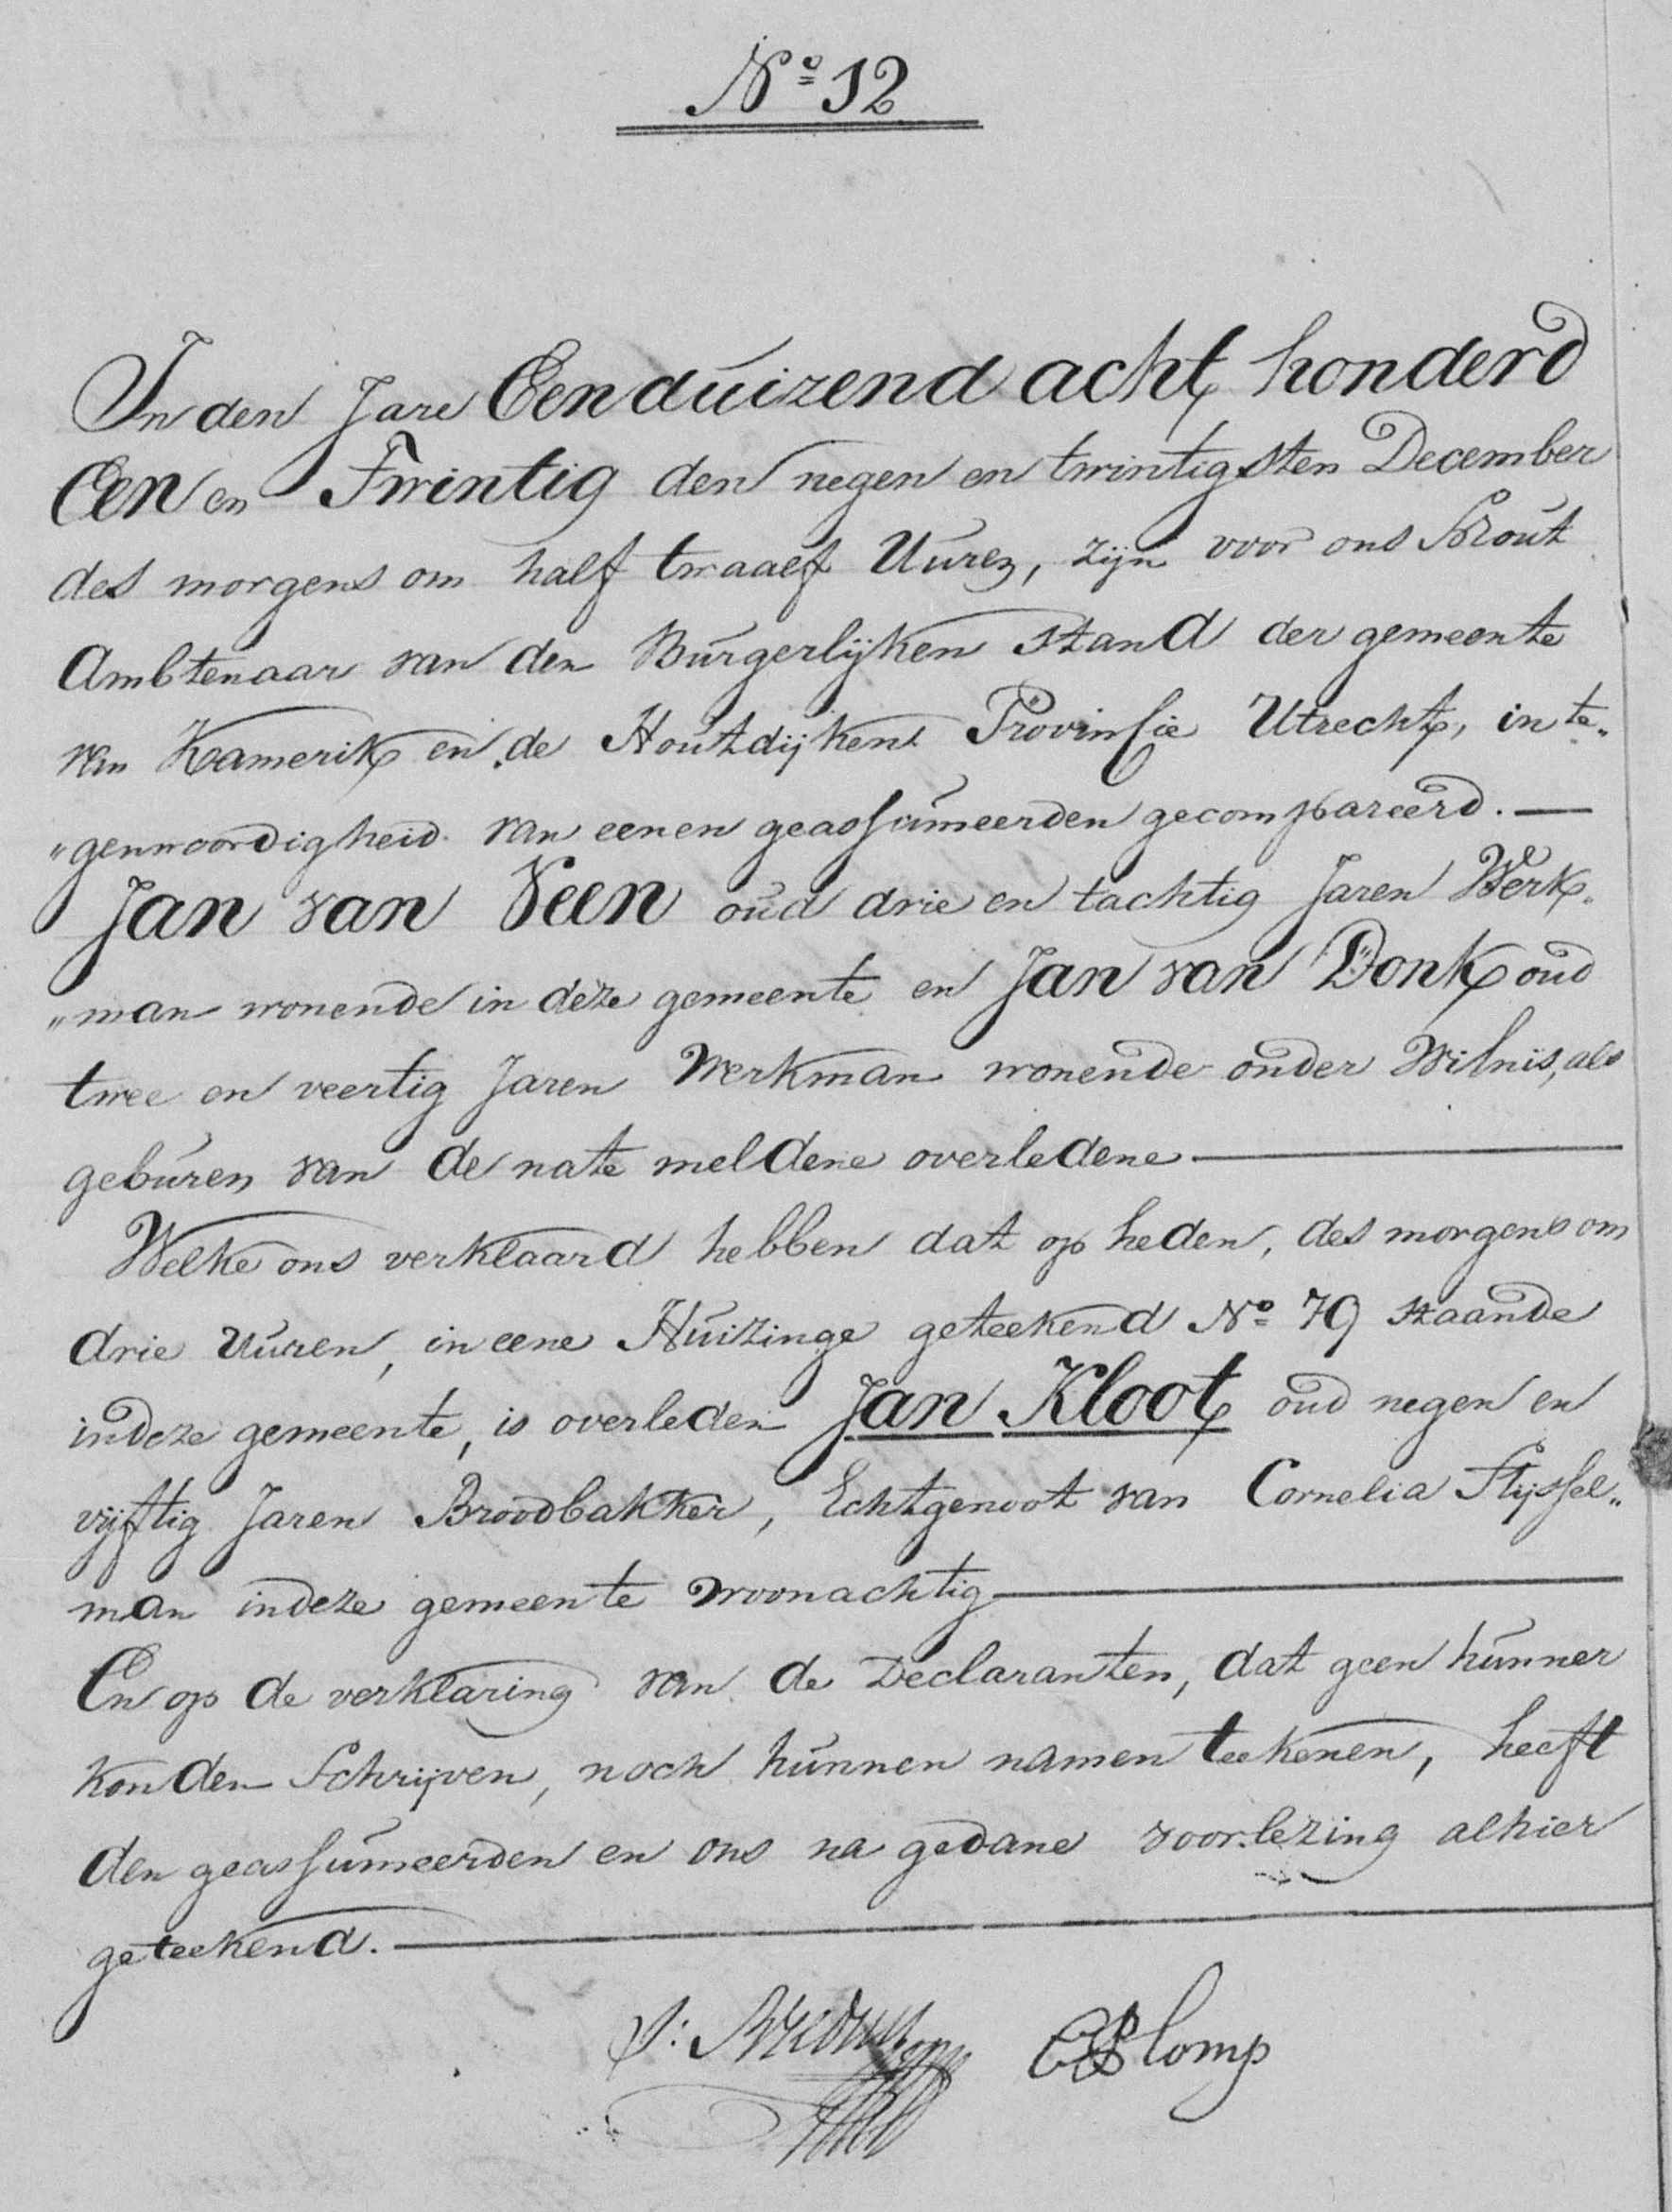 No 12
In den Jare Eenduizend acht honderd
Een en Twintig den negen en twintigsten December
des morgens om half twaalf Uuren, zijn voor ons Schout
Ambtenaar van den Burgerlijken stand der gemeente
van Kamerik en de Houtdijken Provinsie Utrecht, in te„
„genwoordigheid van eenen geassumeerden gecompareerd. —
Jan van Veen oud drie en tachtig Jaren Werk„
„man wonende in deze gemeente en Jan van Donk oud
twee en veertig Jaren Werkman wonende onder Wilnis, als
geburen van de nate meldene overledene —
Welke ons verklaard hebben dat op heden, des morgens om
drie Uuren, in eene Huizinge geteekend No 79 staande
indeze gemeente, is overleden Jan Kloot oud negen en
vijftig Jaren Broodbakker, Echtgenoot van Cornelia Stijssel„
man indeze gemeente woonachtig —
En op de verklaring van de Declaranten, dat geen hunner
konden Schrijven, noch hunnen namen teekenen, heeft
den geassumeerden en ons na gedane voorlezing alhier
geteekend. —
Plomp